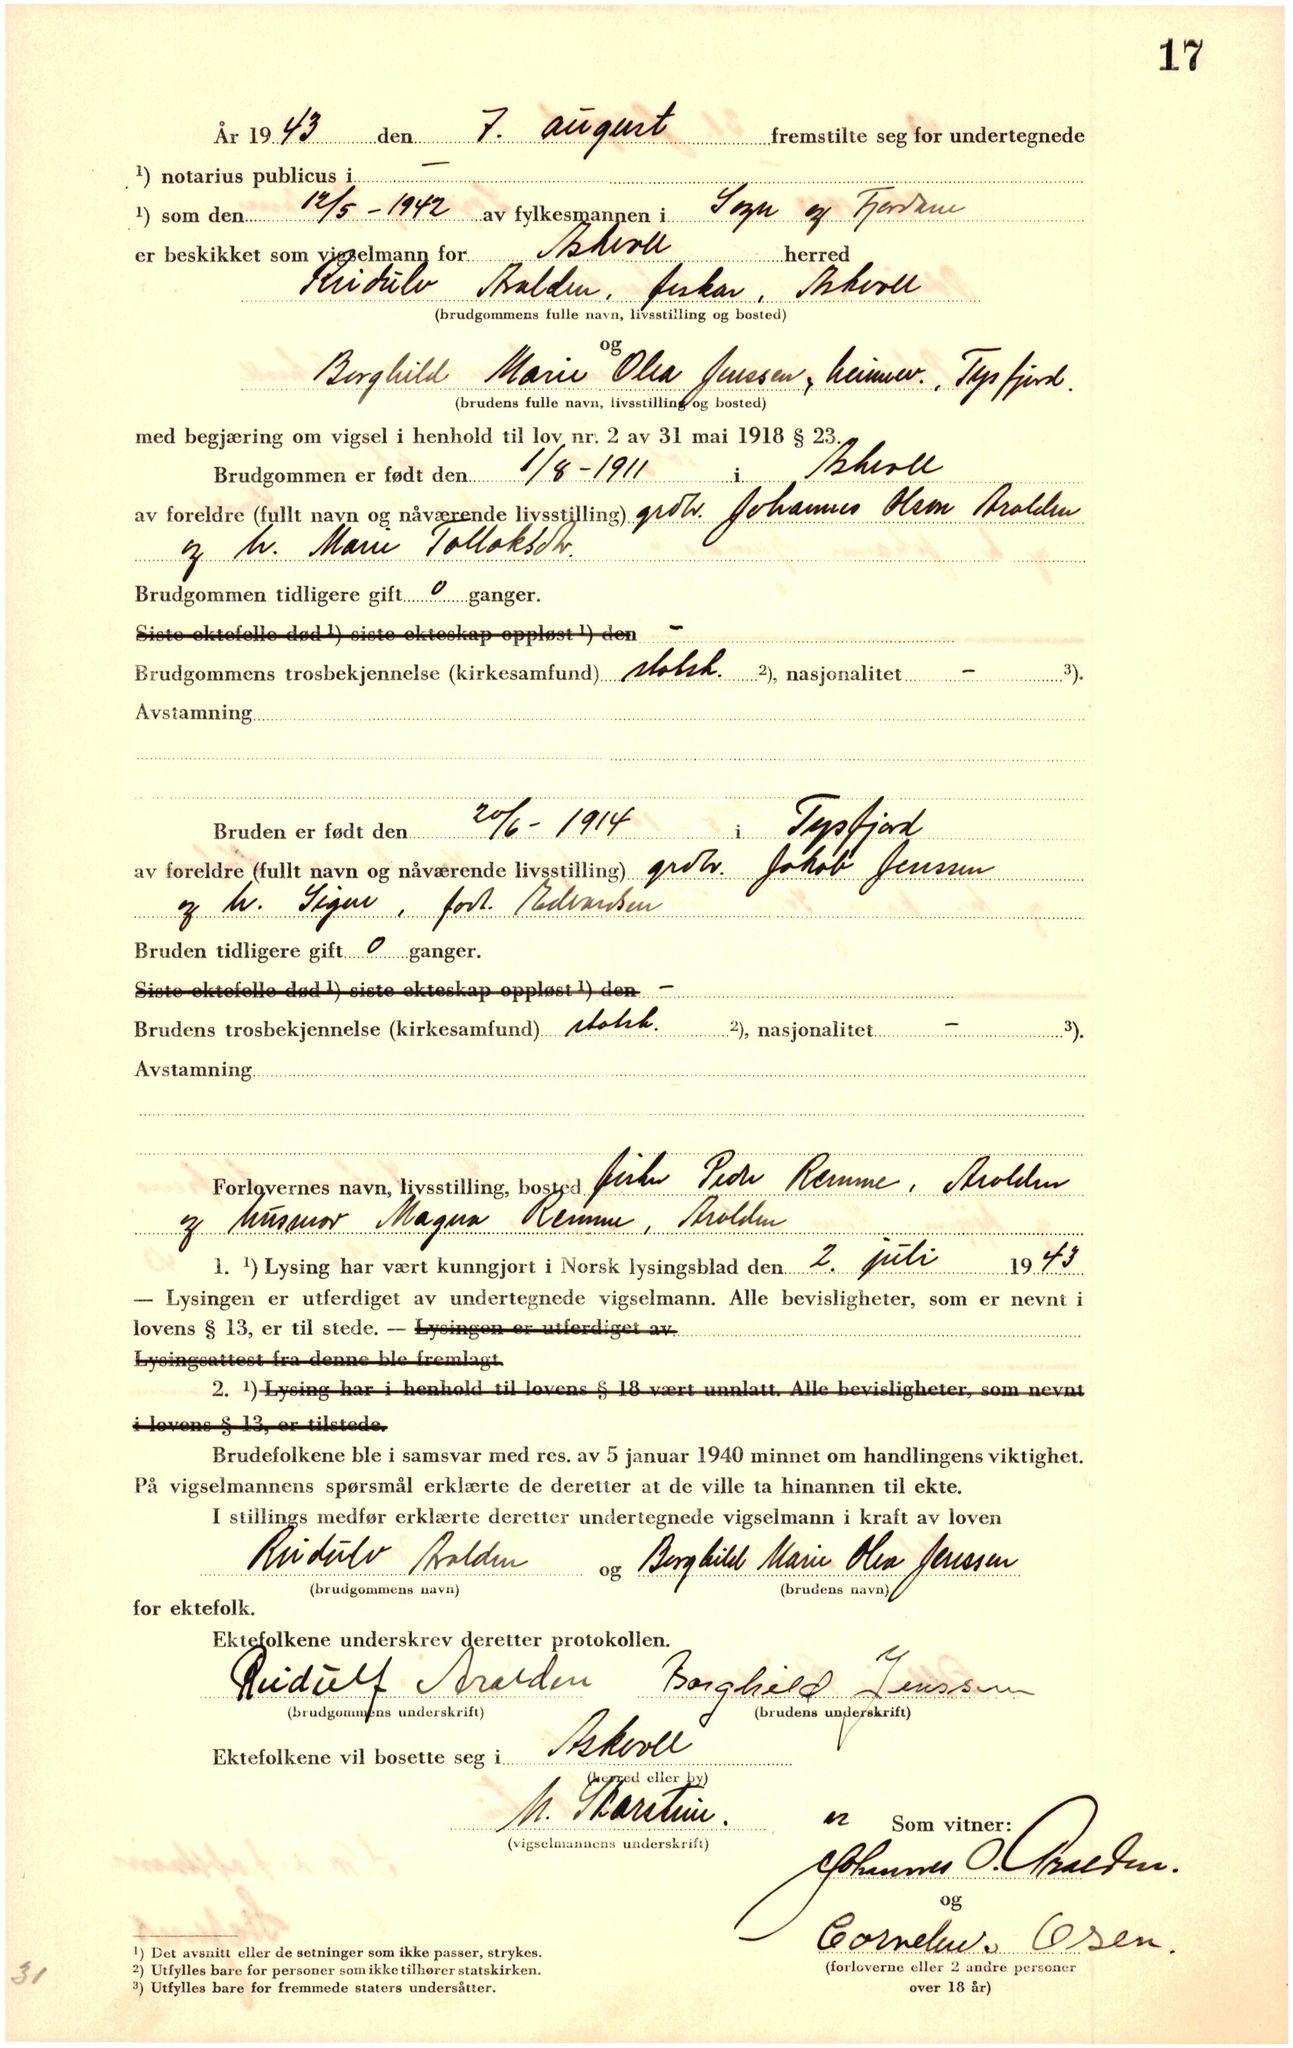 17
År 1943 den 7. august fremstilte seg for undertegnede
¹) notarius publicus i —
¹) som den 12/5 - 1942 av fylkesmannen i Sogn og Fjordane
er beskikket som vigselmann for Askvoll herred
Ridulv Aralden, fiskar, Askvoll
(brudgommens fulle navn, livsstilling og bosted)
og
Borghild Marie Olea Jenssen, heimev., Tysfjord.
(brudens fulle navn, livsstilling og bosted)
med begjæring om vigsel i henhold til lov nr. 2 av 31 mai 1918 § 23.
Brudgommen er født den 1/8 - 1911 i Askvoll
av foreldre (fullt navn og nåværende livsstilling) grdbr. Johannes Olson Aralden
og h. Marie Tolloksdtr.
Brudgommen tidligere gift 0 ganger.
Siste ektefelle død ¹) siste ekteskap oppløst ¹) den —
Brudgommens trosbekjennelse (kirkesamfund) statsk. ²), nasjonalitet — ³).
Avstamning
Bruden er født den 20/6 - 1914 i Tysfjord
av foreldre (fullt navn og nåværende livsstilling) grdbr. Jakob Jenssen
og h. Signe, født. Edvardsen
Bruden tidligere gift 0 ganger.
Siste ektefelle død ¹) siste ekteskap oppløst ¹) den —
Brudens trosbekjennelse (kirkesamfund) statsk. ²), nasjonalitet — ³).
Avstamning
Forlovernes navn, livsstilling, bosted fisker Peder Remme, Aralden
og husmor Magna Remme, Aralden
1. ¹) Lysing har vært kunngjort i Norsk lysingsblad den 2. juli 1943
— Lysingen er utferdiget av undertegnede vigselmann. Alle bevisligheter, som er nevnt i
lovens § 13, er til stede. — Lysingen er utferdiget av
Lysingsattest fra denne ble fremlagt.
2. ¹) Lysing har i henhold til lovens § 18 vært unnlatt. Alle bevisligheter, som nevnt
i lovens § 13, er tilstede.
Brudefolkene ble i samsvar med res. av 5 januar 1940 minnet om handlingens viktighet.
På vigselmannens spørsmål erklærte de deretter at de ville ta hinannen til ekte.
I stillings medfør erklærte deretter undertegnede vigselmann i kraft av loven
Ridulv Aralden og Borghild Marie Olea Jenssen
(brudgommens navn) (brudens navn)
for ektefolk.
Ektefolkene underskrev deretter protokollen.
Ridulf Aralden Borghild Jenssen
(brudgommens underskrift) (brudens underskrift)
Ektefolkene vil bosette seg i Askvoll
(herred eller by)
M. Skarstein.
(vigselmannens underskrift)
Som vitner:
Johannes O. Aralden.
og
Cornelius Osen.
(forloverne eller 2 andre personer
over 18 år)
¹) Det avsnitt eller de setninger som ikke passer, strykes.
²) Utfylles bare for personer som ikke tilhører statskirken.
³) Utfylles bare for fremmede staters undersåtter.
31